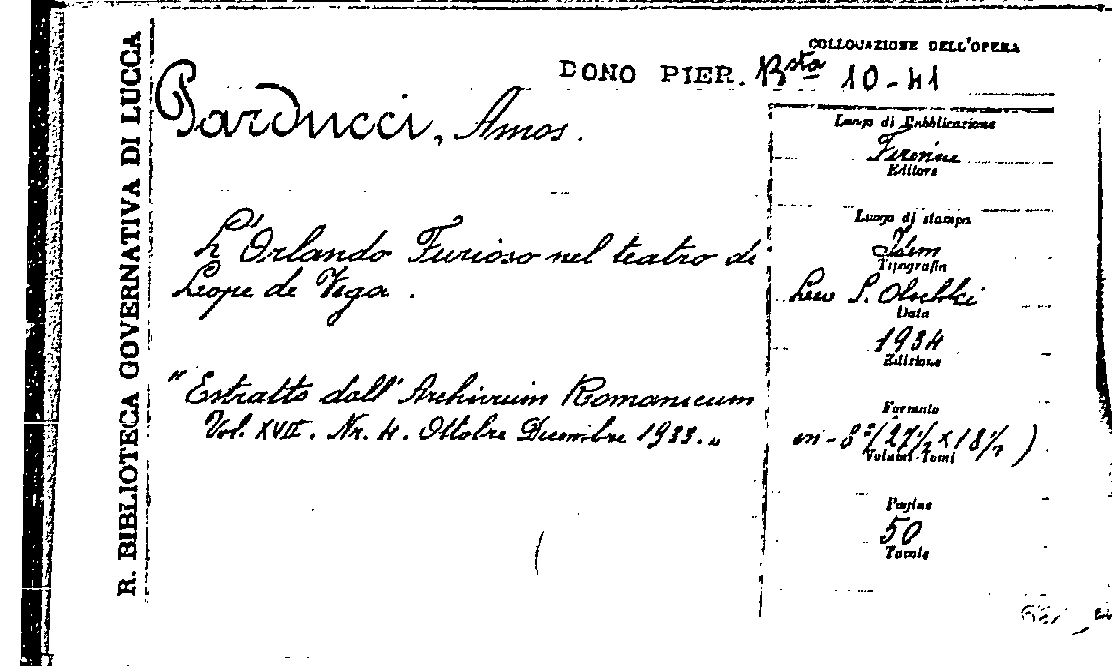 R. BIBLIOTECA GOVERNATIVA DI LUCCA
COLLOCAZIONE DELL'OPERA
DONO PIER. Bsta 10-41
Parducci, Amos.
L'Orlando Furioso nel teatro di
Lope de Vega.
"Estratto dall'Archivum Romanicum
Vol. XVII. Nr. 4. Ottobre Dicembre 1933."
Luogo di Pubblicazione
Firenze
Editore
Luogo di stampa
Idem
Tipografia
Leo S. Olschki
Data
1934
Edizione
Formato
in-8°(27½×18½)
Volumi-Tomi
Pagine
50
Tavole